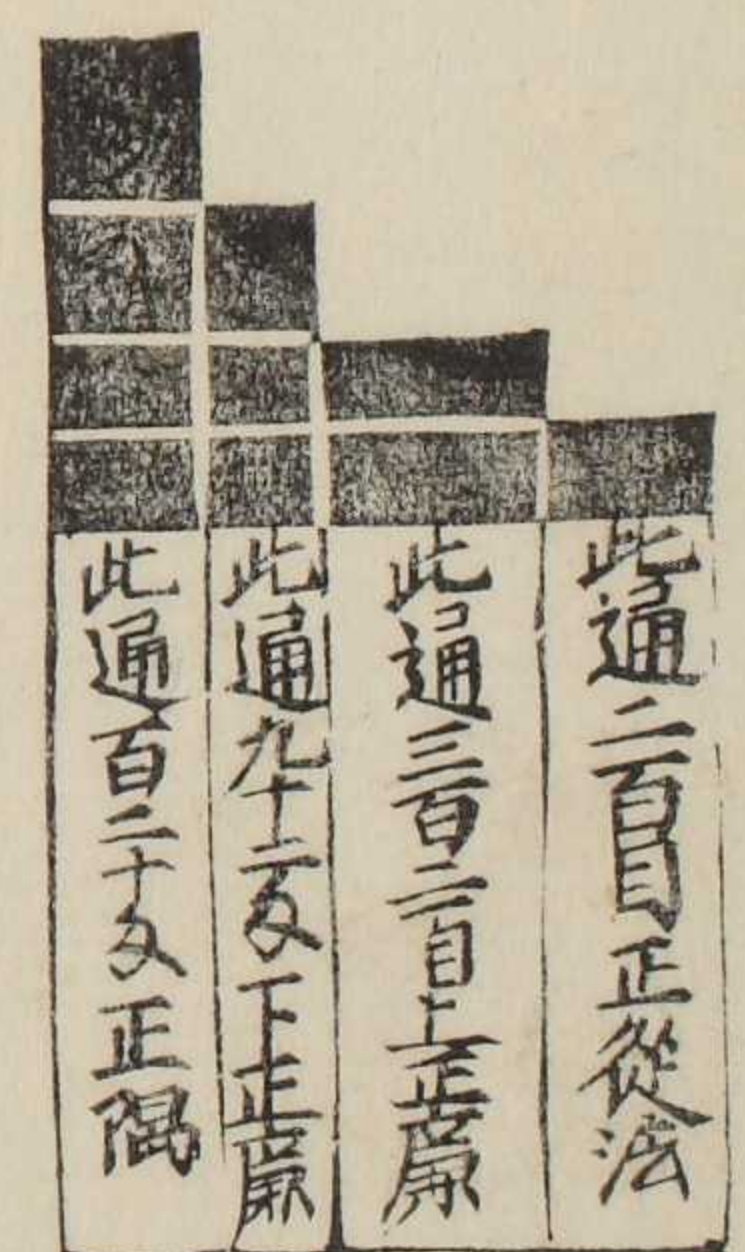 此通二百目正從法
此通三百二目上正廉
此通九十二文下正廉
此通百二十文正隅